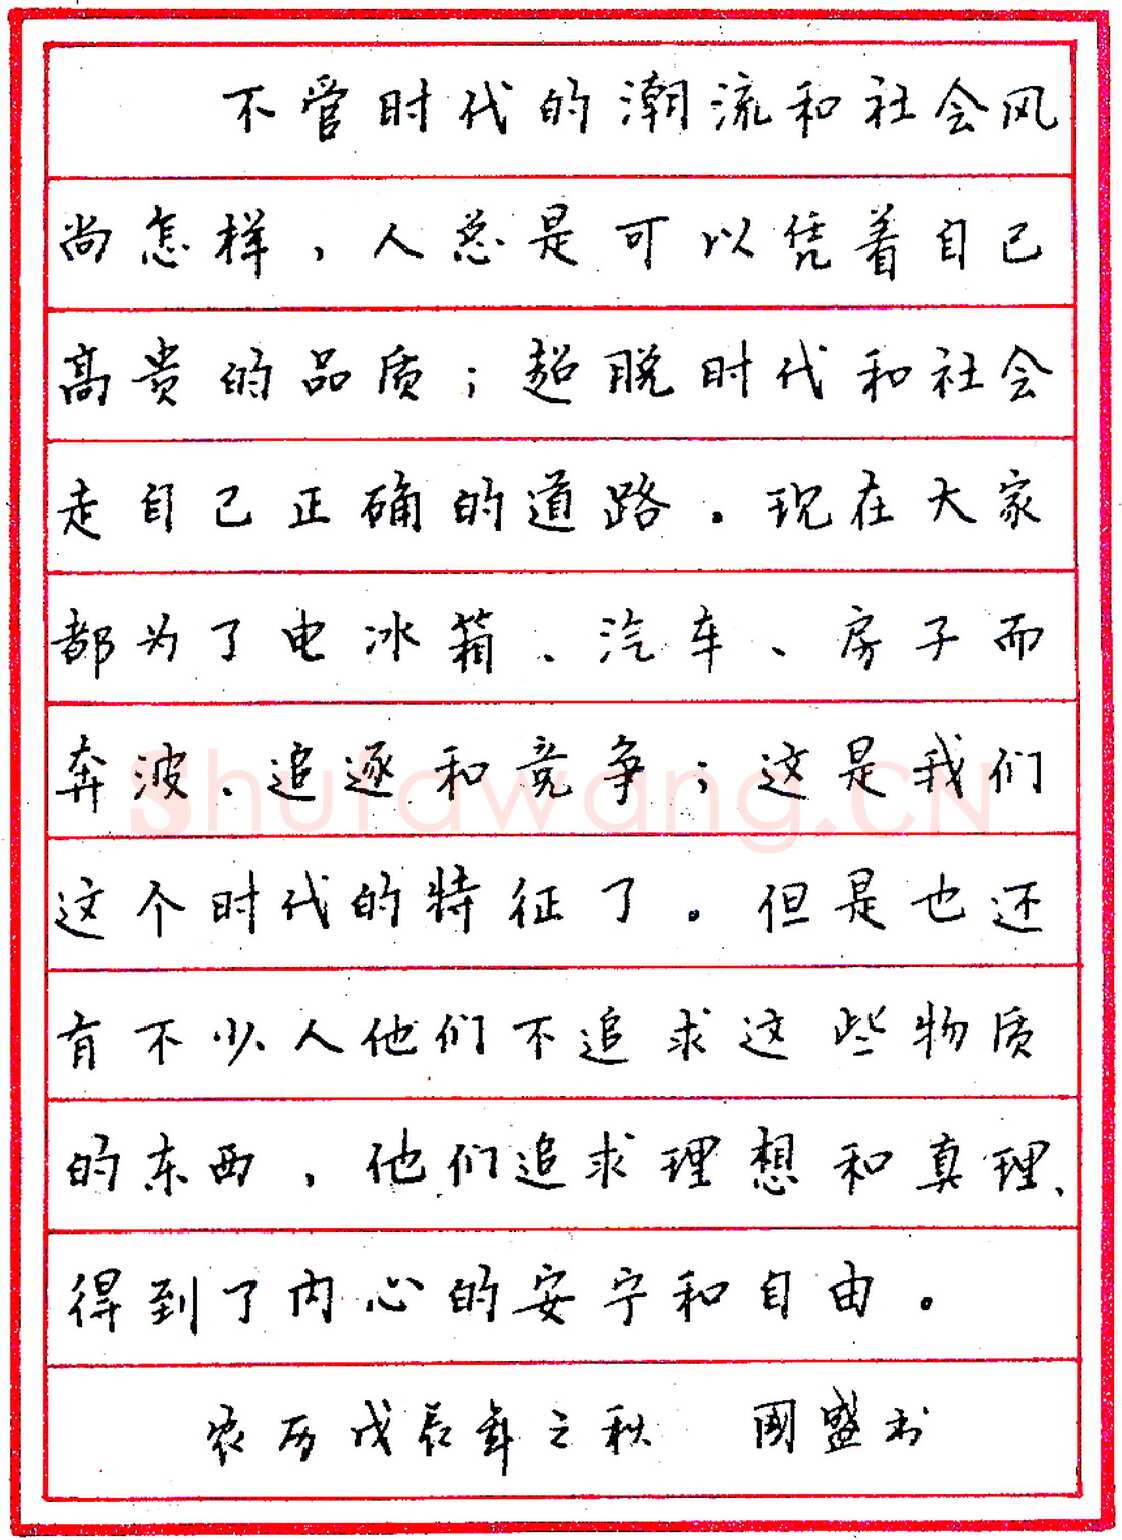 不管时代的潮流和社会风
尚怎样，人总是可以凭着自己
高贵的品质；超脱时代和社会
走自己正确的道路。现在大家
都为了电冰箱、汽车、房子而
奔波、追逐和竞争；这是我们
这个时代的特征了。但是也还
有不少人他们不追求这些物质
的东西，他们追求理想和真理、
得到了内心的安宁和自由。
农历戊辰年之秋 国盛书
Shufawang.CN